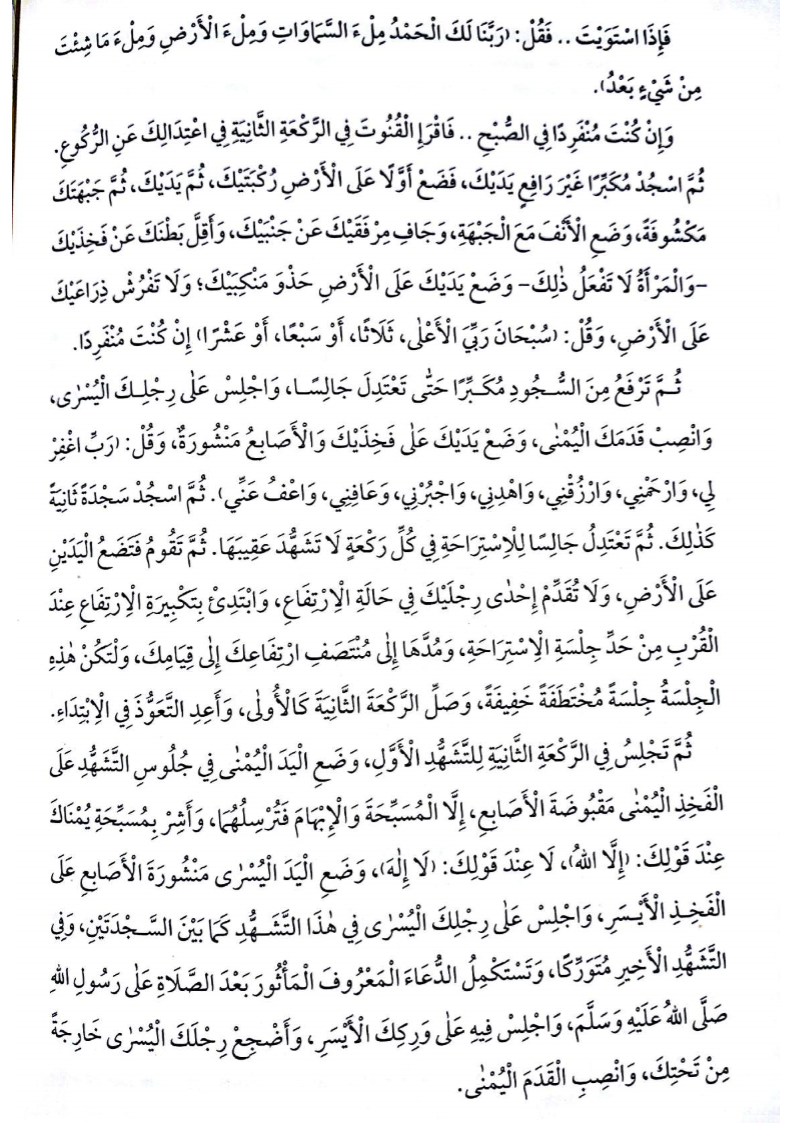 فَإِذَا اسْتَوَيْتَ .. فَقُلْ: (رَبَّنَا لَكَ الْحَمْدُ مِلْءَ السَّمَاوَاتِ وَمِلْءَ الْأَرْضِ وَمِلْءَ مَا شِئْتَ
مِنْ شَيْءٍ بَعْدُ).
وَإِنْ كُنْتَ مُنْفَرِدًا فِي الصُّبْحِ .. فَاقْرَإِ الْقُنُوتَ فِي الرَّكْعَةِ الثَّانِيَةِ فِي اعْتِدَالِكَ عَنِ الرُّكُوعِ.
ثُمَّ اسْجُدْ مُكَبِّرًا غَيْرَ رَافِعٍ يَدَيْكَ، فَضَعْ أَوَّلًا عَلَى الْأَرْضِ رُكْبَتَيْكَ، ثُمَّ يَدَيْكَ، ثُمَّ جَبْهَتَكَ
مَكْشُوفَةً، وَضَعِ الْأَنْفَ مَعَ الْجَبْهَةِ، وَجَافِ مِرْفَقَيْكَ عَنْ جَنْبَيْكَ، وَأَقِلَّ بَطْنَكَ عَنْ فَخِذَيْكَ
-وَالْمَرْأَةُ لَا تَفْعَلُ ذٰلِكَ- وَضَعْ يَدَيْكَ عَلَى الْأَرْضِ حَذْوَ مَنْكِبَيْكَ؛ وَلَا تَفْرُشْ ذِرَاعَيْكَ
عَلَى الْأَرْضِ، وَقُلْ: (سُبْحَانَ رَبِّيَ الْأَعْلٰى، ثَلَاثًا، أَوْ سَبْعًا، أَوْ عَشْرًا) إِنْ كُنْتَ مُنْفَرِدًا.
ثُمَّ تَرْفَعُ مِنَ السُّجُودِ مُكَبِّرًا حَتّٰى تَعْتَدِلَ جَالِسًا، وَاجْلِسْ عَلٰى رِجْلِكَ الْيُسْرٰى،
وَانْصِبْ قَدَمَكَ الْيُمْنٰى، وَضَعْ يَدَيْكَ عَلٰى فَخِذَيْكَ وَالْأَصَابِعُ مَنْشُورَةٌ، وَقُلْ: (رَبِّ اغْفِرْ
لِي، وَارْحَمْنِي، وَارْزُقْنِي، وَاهْدِنِي، وَاجْبُرْنِي، وَعَافِنِي، وَاعْفُ عَنِّي). ثُمَّ اسْجُدْ سَجْدَةً ثَانِيَةً
كَذٰلِكَ. ثُمَّ تَعْتَدِلُ جَالِسًا لِلْاِسْتِرَاحَةِ فِي كُلِّ رَكْعَةٍ لَا تَشَهُّدَ عَقِيبَهَا. ثُمَّ تَقُومُ فَتَضَعُ الْيَدَيْنِ
عَلَى الْأَرْضِ، وَلَا تُقَدِّمْ إِحْدٰى رِجْلَيْكَ فِي حَالَةِ الْاِرْتِفَاعِ، وَابْتَدِئْ بِتَكْبِيرَةِ الْاِرْتِفَاعِ عِنْدَ
الْقُرْبِ مِنْ حَدِّ جِلْسَةِ الْاِسْتِرَاحَةِ، وَمُدَّهَا إِلٰى مُنْتَصَفِ ارْتِفَاعِكَ إِلٰى قِيَامِكَ، وَلْتَكُنْ هٰذِهِ
الْجِلْسَةُ جِلْسَةً مُخْتَطَفَةً خَفِيفَةً، وَصَلِّ الرَّكْعَةَ الثَّانِيَةَ كَالْأُولٰى، وَأَعِدِ التَّعَوُّذَ فِي الْاِبْتِدَاءِ.
ثُمَّ تَجْلِسُ فِي الرَّكْعَةِ الثَّانِيَةِ لِلتَّشَهُّدِ الْأَوَّلِ، وَضَعِ الْيَدَ الْيُمْنٰى فِي جُلُوسِ التَّشَهُّدِ عَلَى
الْفَخِذِ الْيُمْنٰى مَقْبُوضَةَ الْأَصَابِعِ، إِلَّا الْمُسَبِّحَةَ وَالْإِبْهَامَ فَتُرْسِلُهُمَا، وَأَشِرْ بِمُسَبِّحَةِ يُمْنَاكَ
عِنْدَ قَوْلِكَ: (إِلَّا اللهُ)، لَا عِنْدَ قَوْلِكَ: (لَا إِلٰهَ)، وَضَعِ الْيَدَ الْيُسْرٰى مَنْشُورَةَ الْأَصَابِعِ عَلَى
الْفَخِذِ الْأَيْسَرِ، وَاجْلِسْ عَلٰى رِجْلِكَ الْيُسْرٰى فِي هٰذَا التَّشَهُّدِ كَمَا بَيْنَ السَّجْدَتَيْنِ، وَفِي
التَّشَهُّدِ الْأَخِيرِ مُتَوَرِّكًا، وَتَسْتَكْمِلُ الدُّعَاءَ الْمَعْرُوفَ الْمَأْثُورَ بَعْدَ الصَّلَاةِ عَلٰى رَسُولِ اللهِ
صَلَّى اللهُ عَلَيْهِ وَسَلَّمَ، وَاجْلِسْ فِيهِ عَلٰى وَرِكِكَ الْأَيْسَرِ، وَأَضْجِعْ رِجْلَكَ الْيُسْرٰى خَارِجَةً
مِنْ تَحْتِكَ، وَانْصِبِ الْقَدَمَ الْيُمْنٰى.